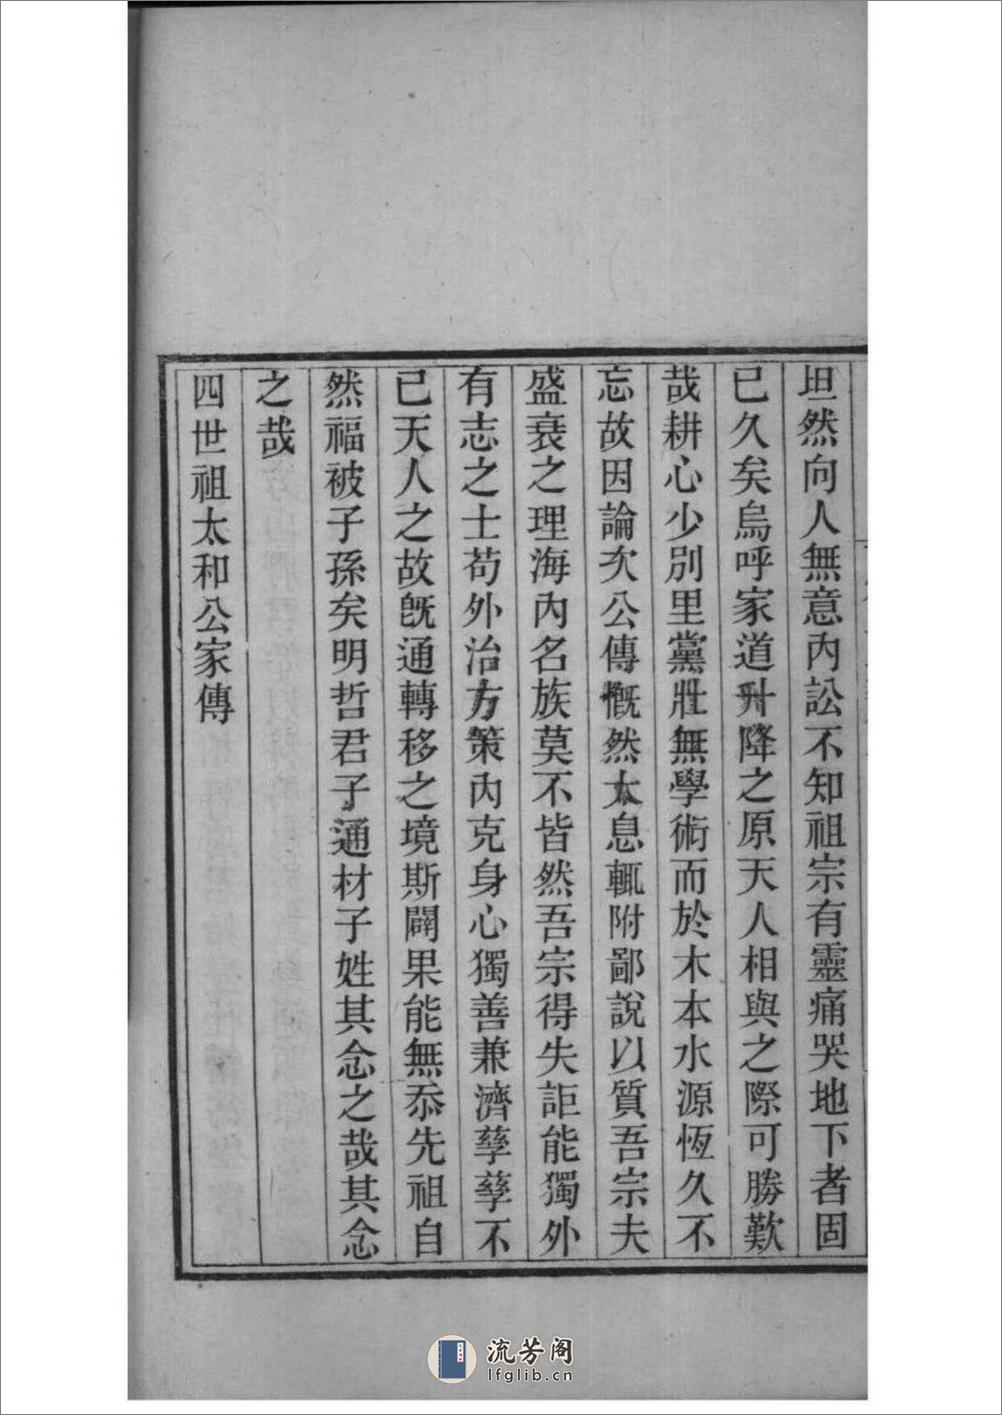 坦然向人無意內訟不知祖宗有靈痛哭地下者固
已久矣烏呼家道升降之原天人相與之際可勝歎
哉耕心少別里黨壯無學術而於木本水源恆久不
忘故因論次公傳慨然太息輒附鄙說以質吾宗夫
盛衰之理海內名族莫不皆然吾宗得失詎能獨外
有志之士苟外治方策內克身心獨善兼濟孳孳不
已天人之故旣通轉移之境斯闢果能無忝先祖自
然福被子孫矣明哲君子通材子姓其念之哉其念
之哉
四世祖太和公家傳
流芳阁
lfglib.cn